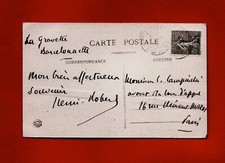 La Gravette
Barcelonnette
CARTE POSTALE
CORRESPONDANCE
ADRESSE
Mon très affectueux
souvenir
Henri-Robert
Monsieur L. Campinchi
avocat à la Cour d'appel
16
Paris